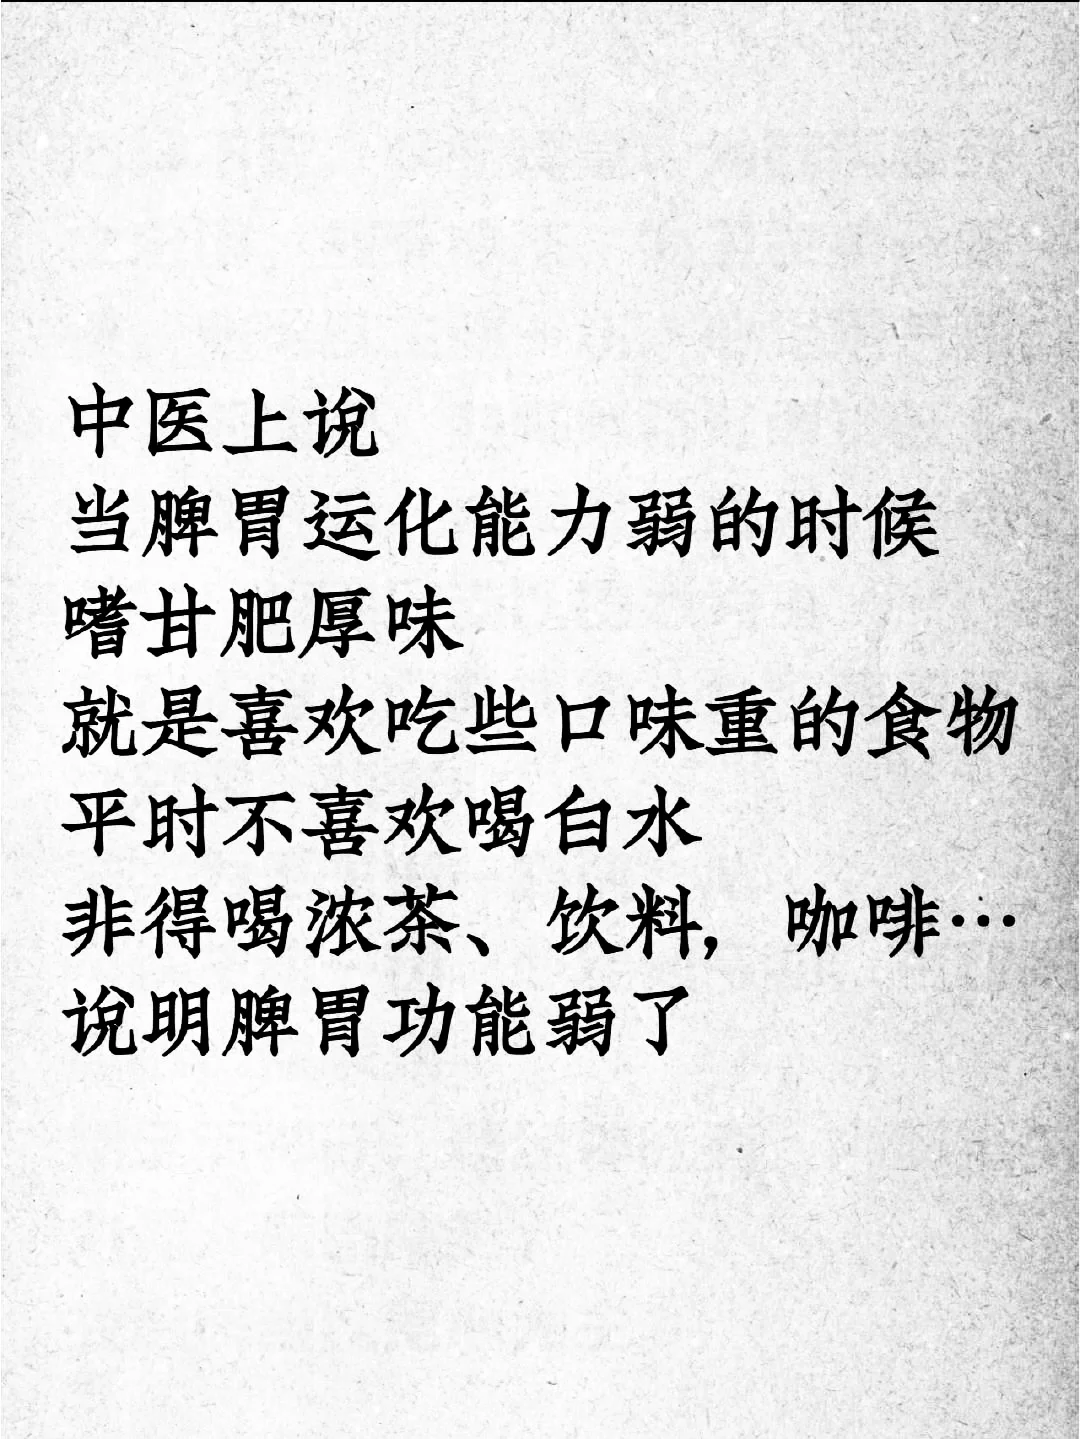 中医上说
当脾胃运化能力弱的时候
嗜甘肥厚味
就是喜欢吃些口味重的食物
平时不喜欢喝白水
非得喝浓茶、饮料，咖啡…
说明脾胃功能弱了